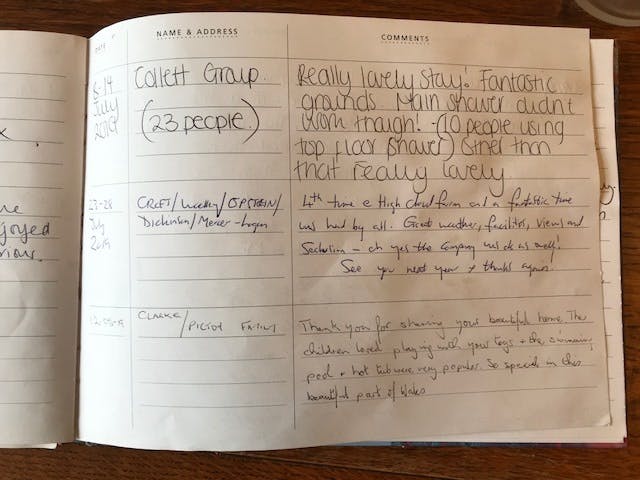 x.
joyed
DATE
NAME & ADDRESS
COMMENTS
July
2019
Collett Group.
(23 people.)
Really lovely stay! Fantastic
grounds. Main shower didn't
work though! (10 people using
top floor shower) Other than
that really lovely.
23-28
July
2019
CROFT/ /EPSTEIN/
Dickinson/Mercer-Logan
4th time @ High Cloud farm and a fantastic time
was had by all. Great weather, facilities, views and
Seclusion - oh yes the Company was ok as well!
See you next year + thanks again.
CLARKE/PICTON FAMILY
Thank you for sharing your beautiful home. The
children loved playing with your toys + the swimming
pool + hot tub were very popular. So special in this
beautiful part of Wales